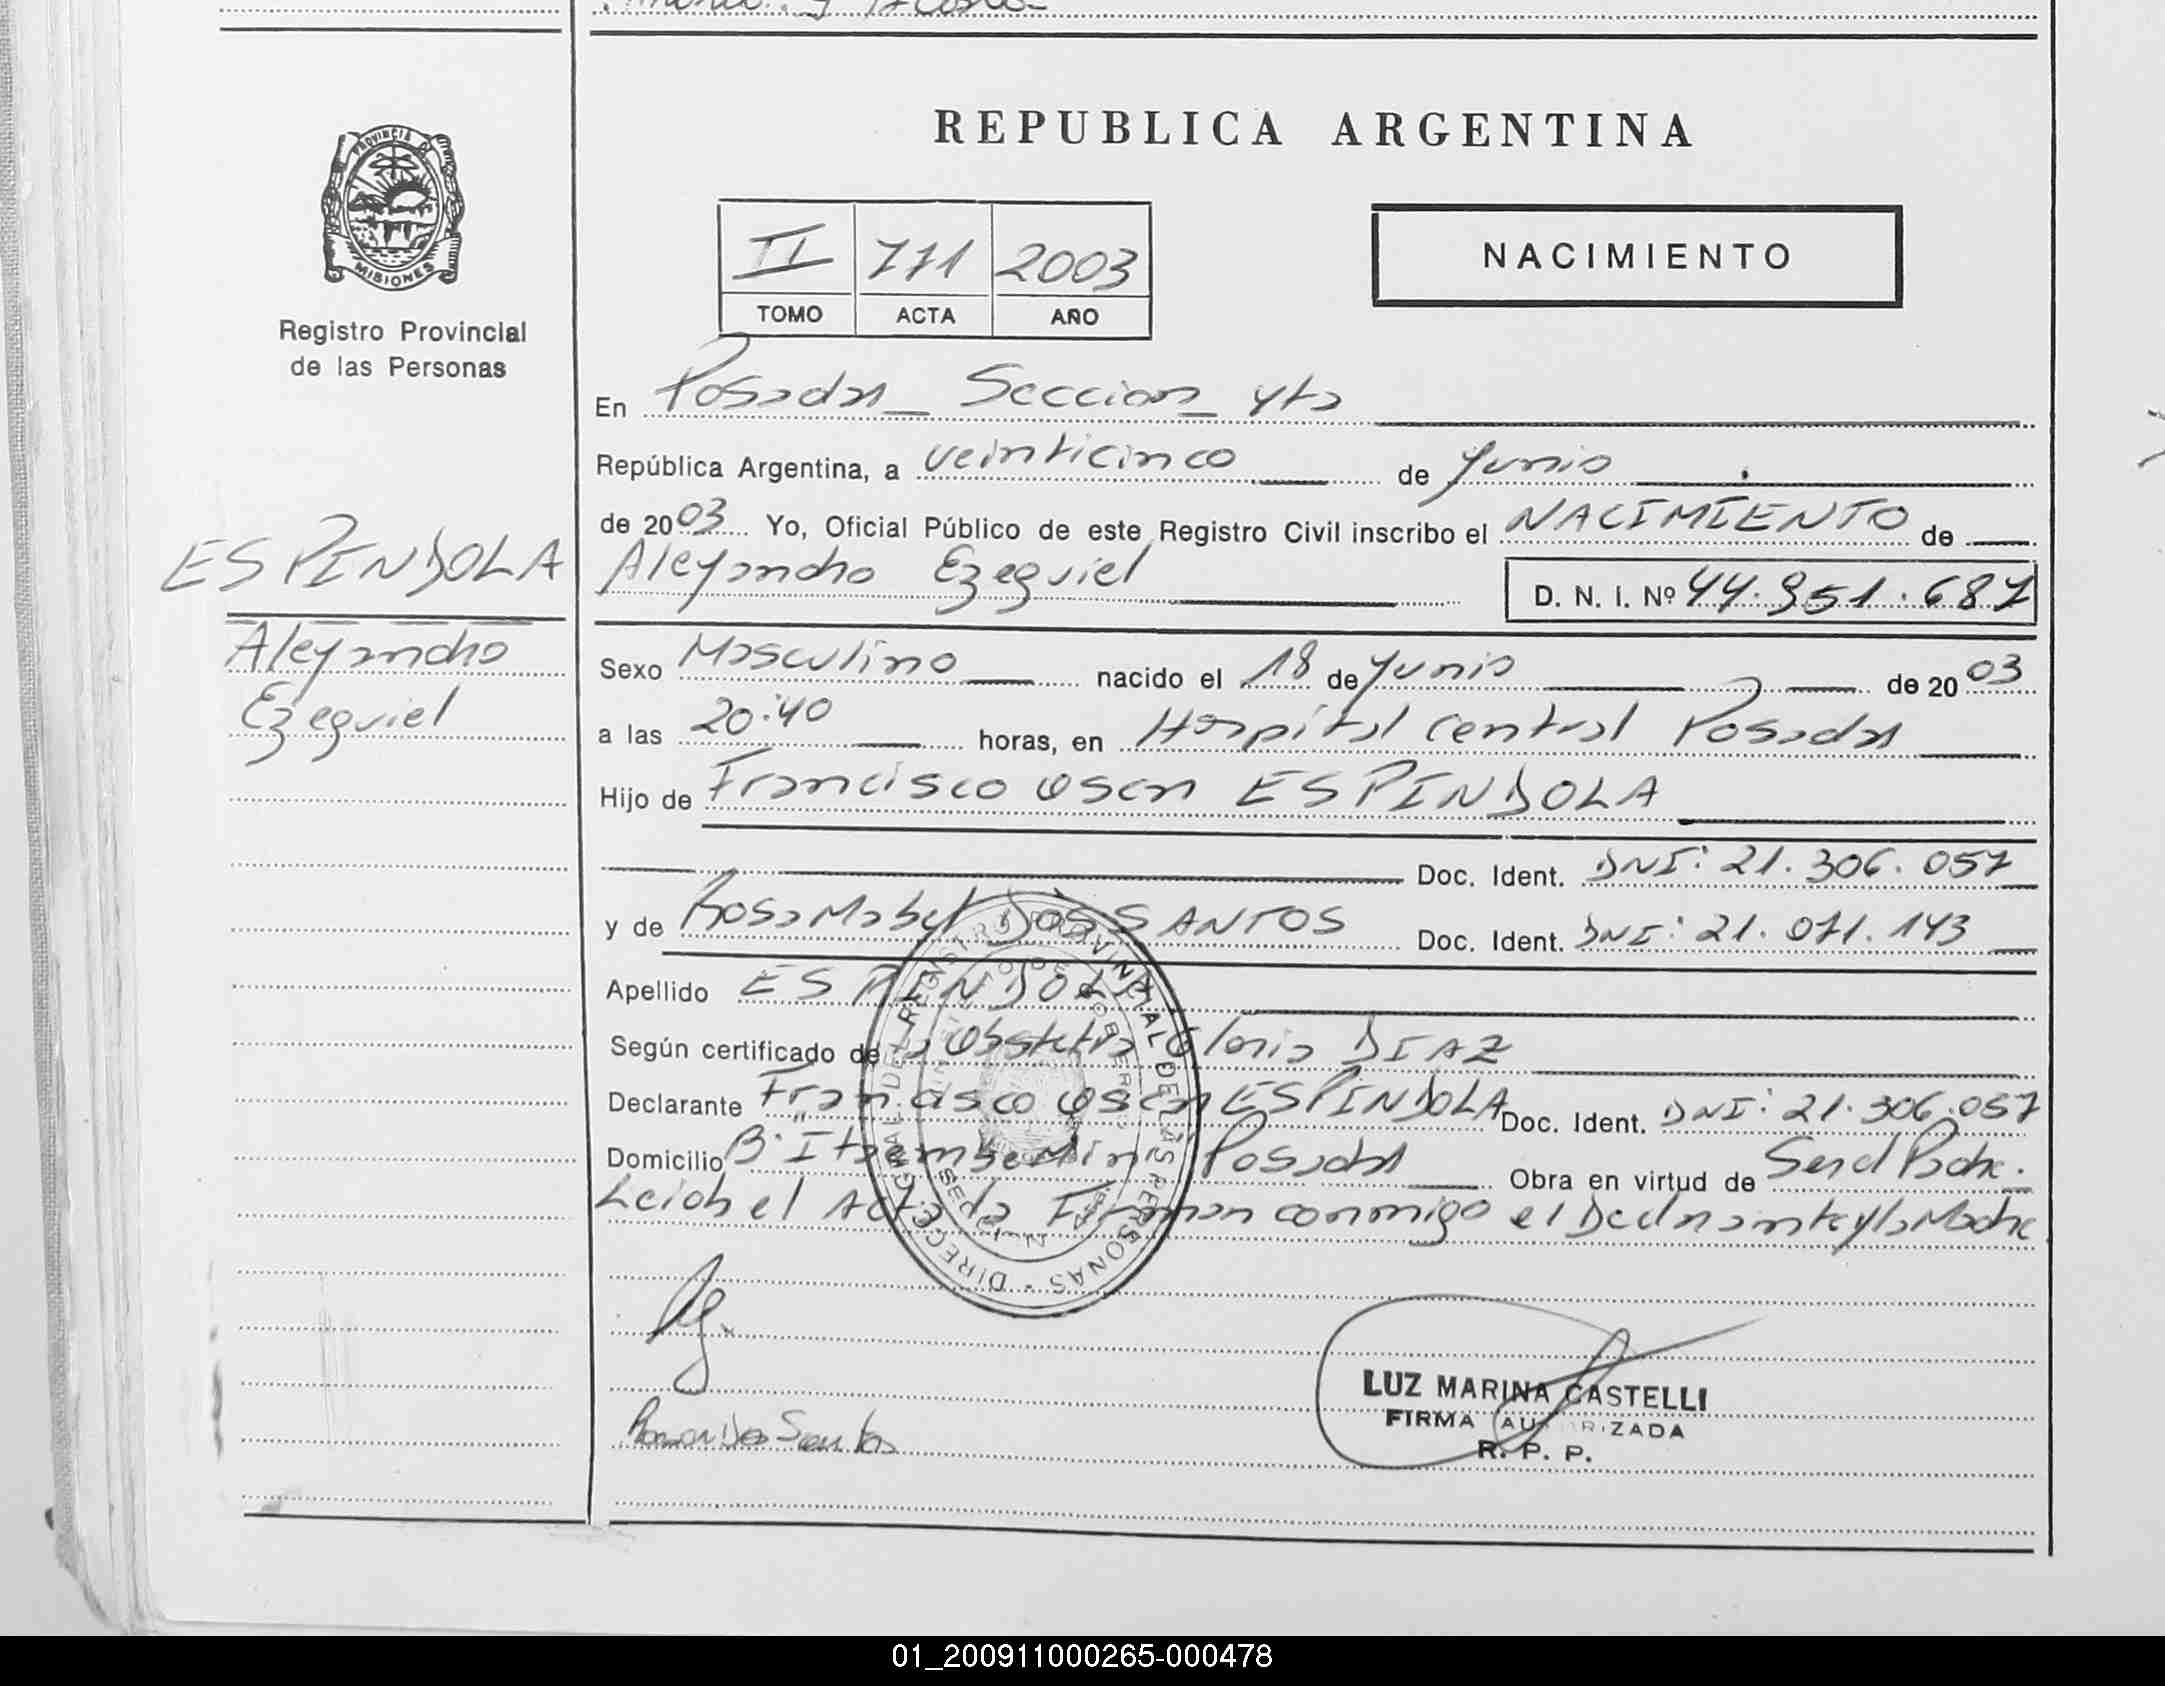 PROVINCIA DE
MISIONES
Registro Provincial
de las Personas
ESPINDOLA
Alejandro
Ezequiel
REPUBLICA ARGENTINA
II 771 2003
TOMO ACTA AÑO
NACIMIENTO
En Posadas_ Seccion_ 4ta
República Argentina, a veinticinco de Junio
de 2003 Yo, Oficial Público de este Registro Civil inscribo el NACIMIENTO de
Alejandro Ezequiel D. N. I. Nº 44.951.687
Sexo Masculino nacido el 18 de Junio de 2003
a las 20:40 horas, en Hospital Central Posadas
Hijo de Francisco Oscar ESPINDOLA
Doc. Ident. DNI: 21.306.057
y de Rosa Mabel DOS SANTOS Doc. Ident. DNI: 21.071.143
Apellido ESPINDOLA
Según certificado de la Obstetra Gloria DIAZ
Declarante Francisco Oscar ESPINDOLA Doc. Ident. DNI: 21.306.057
Domicilio B° Itaembe Mini Posadas Obra en virtud de Ser el Padre.
Leida el Acta la Firman conmigo el Declarante y la Madre.
DIREC. GRAL DEL REGISTRO PROVINCIAL DE LAS PERSONAS
LUZ MARINA CASTELLI
FIRMA AUTORIZADA
R. P. P.
01_200911000265-000478